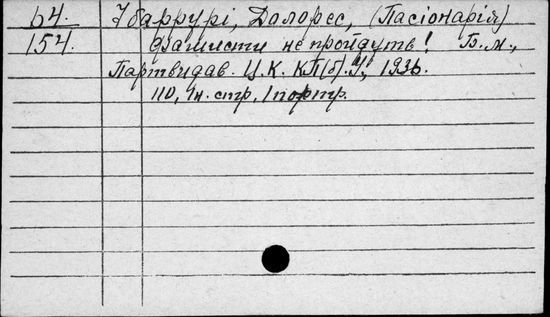 64.
154.
Ібаррурі, Долорес, (Пасіонарія)
Фашисти не пройдуть! Б.м.,
Партвидав. Ц.К. КП(б).У, 1936.
110, 1н. стр, 1 портр.